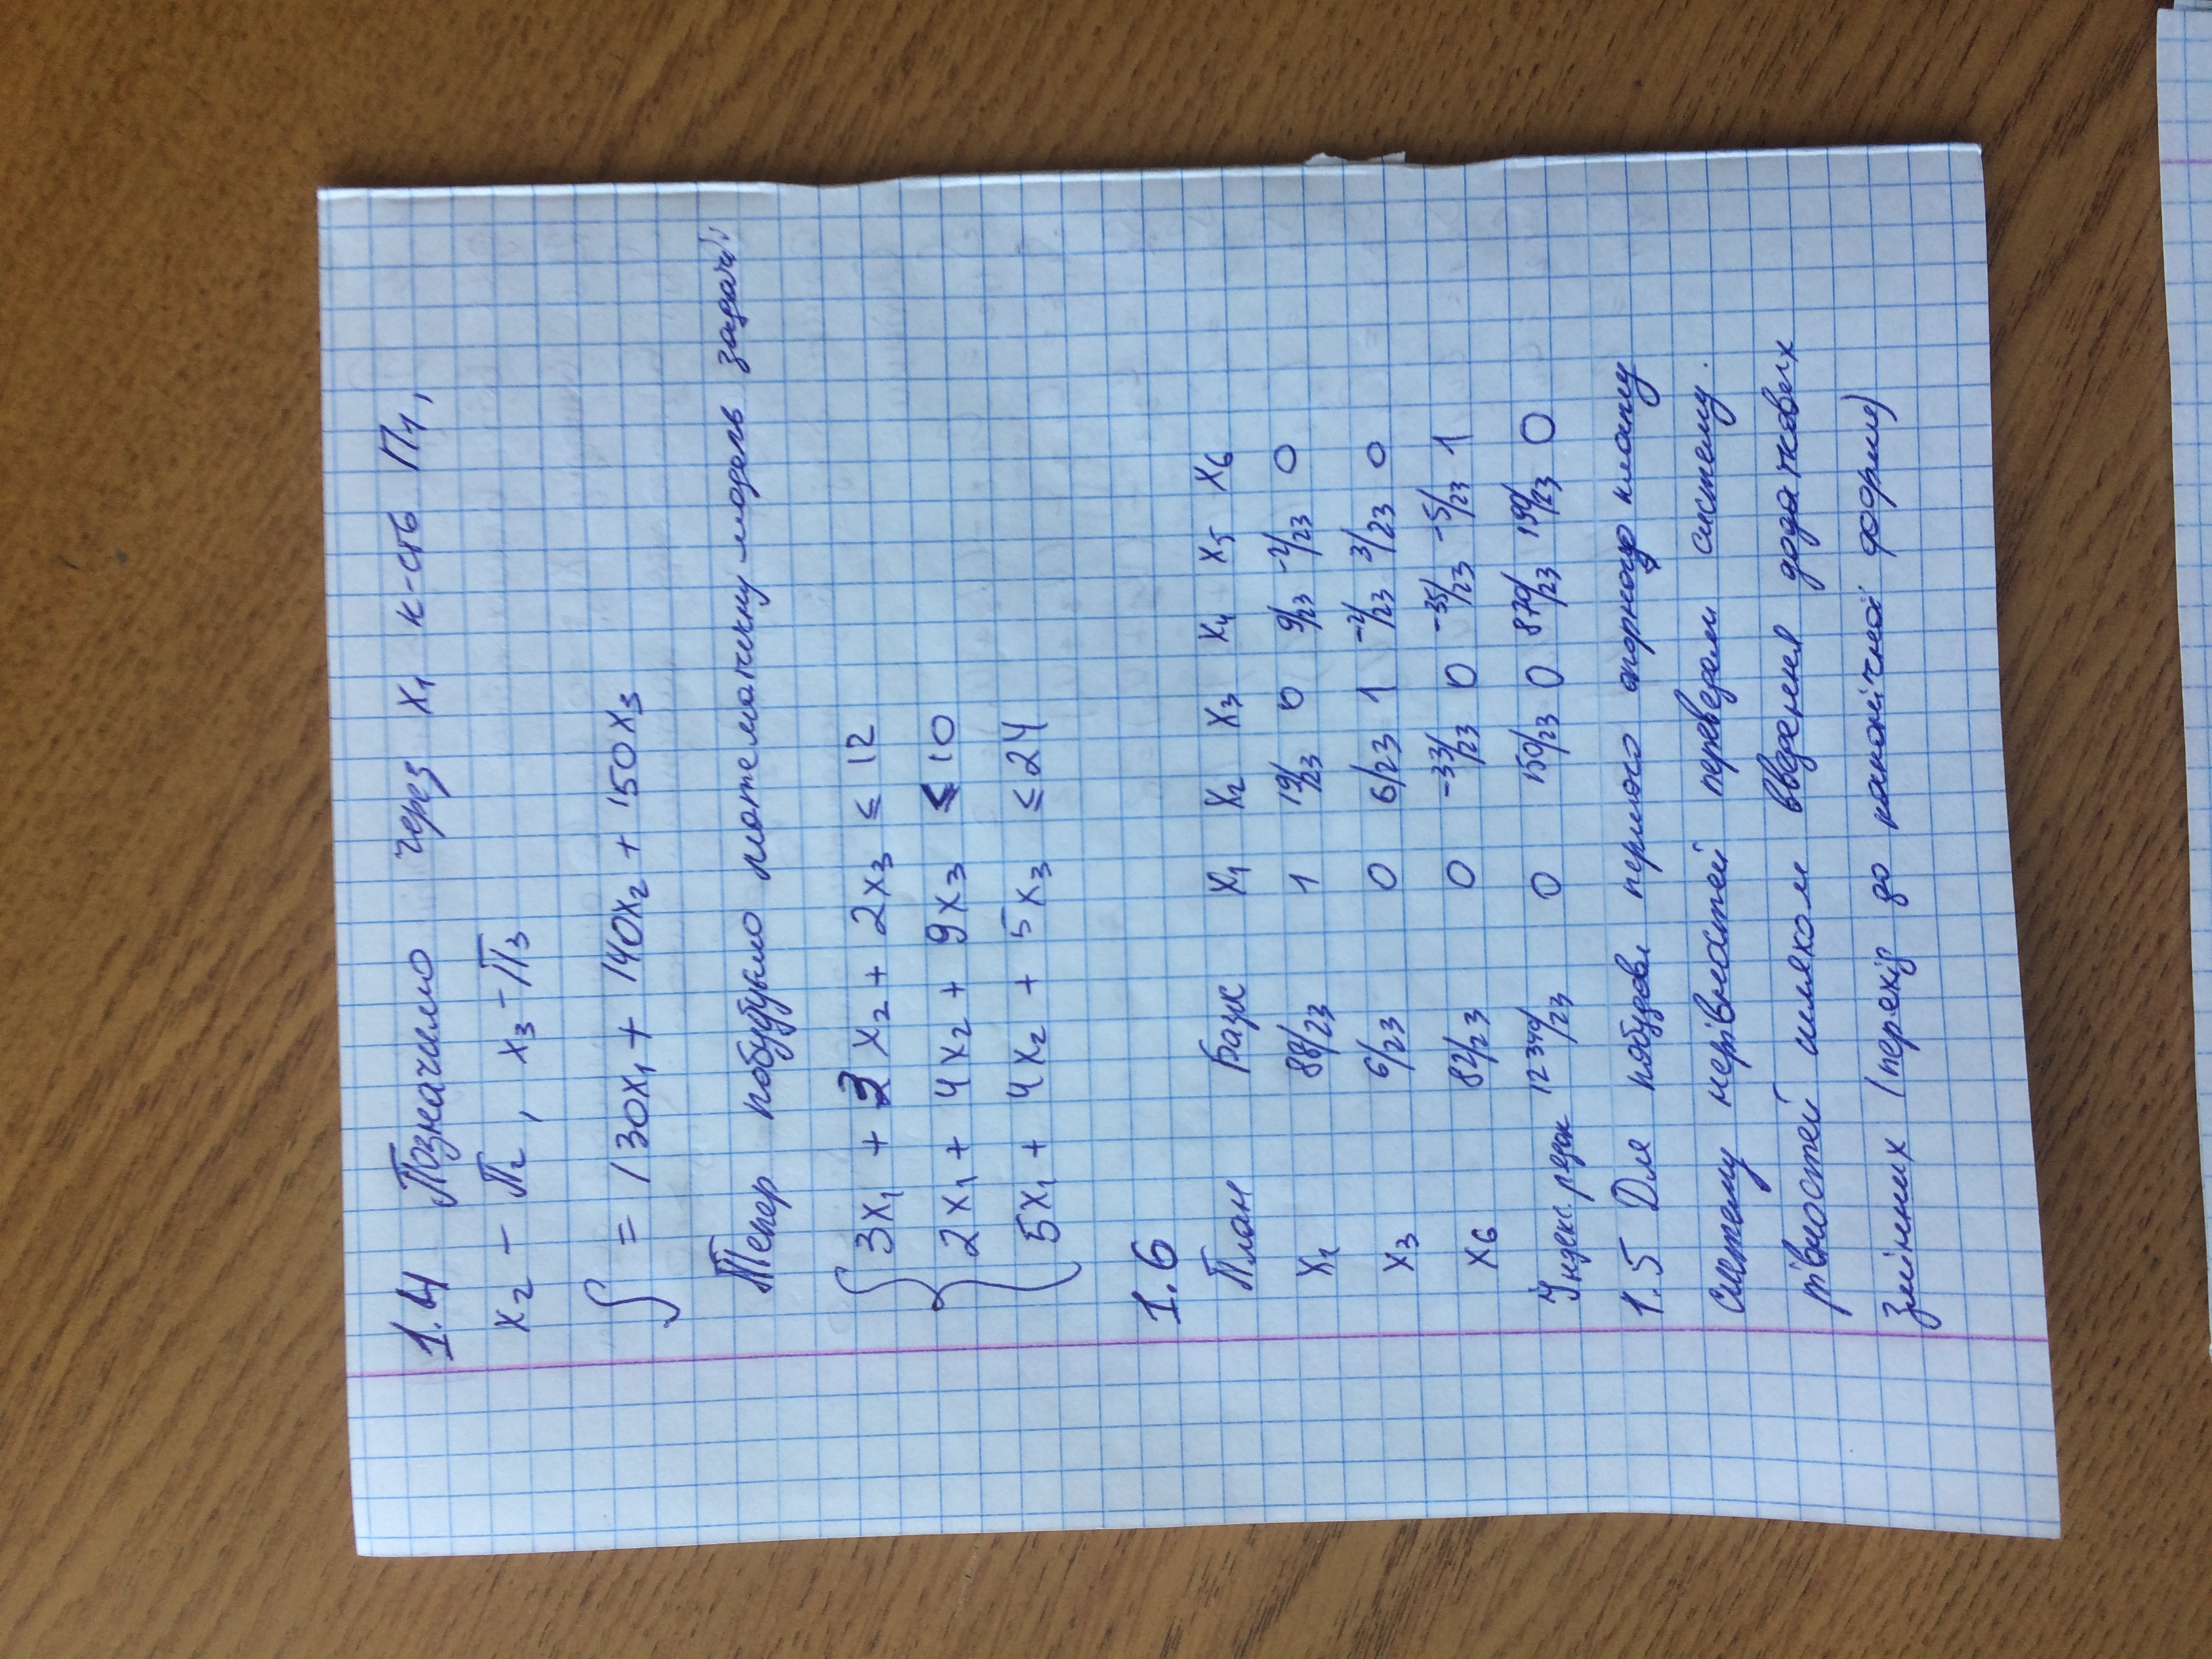 1.4 Позначимо через x₁ к-сть П₁,
x₂ – П₂, x₃ – П₃
∫ = 130x₁ + 140x₂ + 150x₃
Тепер побудуємо математичну модель задачі:
3x₁ + 3x₂ + 2x₃ ≤ 12
2x₁ + 4x₂ + 9x₃ ≤ 10
5x₁ + 4x₂ + 5x₃ ≤ 24
1.6
План Базис x₁ x₂ x₃ x₄ x₅ x₆
x₁ 88/23 1 19/23 0 9/23 -2/23 0
x₃ 6/23 0 6/23 1 -2/23 3/23 0
x₆ 82/23 0 -33/23 0 -35/23 -5/23 1
Індекс. рядок 12340/23 0 150/23 0 870/23 190/23 0
1.5 Для побудови першого опорного плану
систему нерівностей переведем систему.
рівностей шляхом введення додаткових
змінних (перехід до канонічної форми)